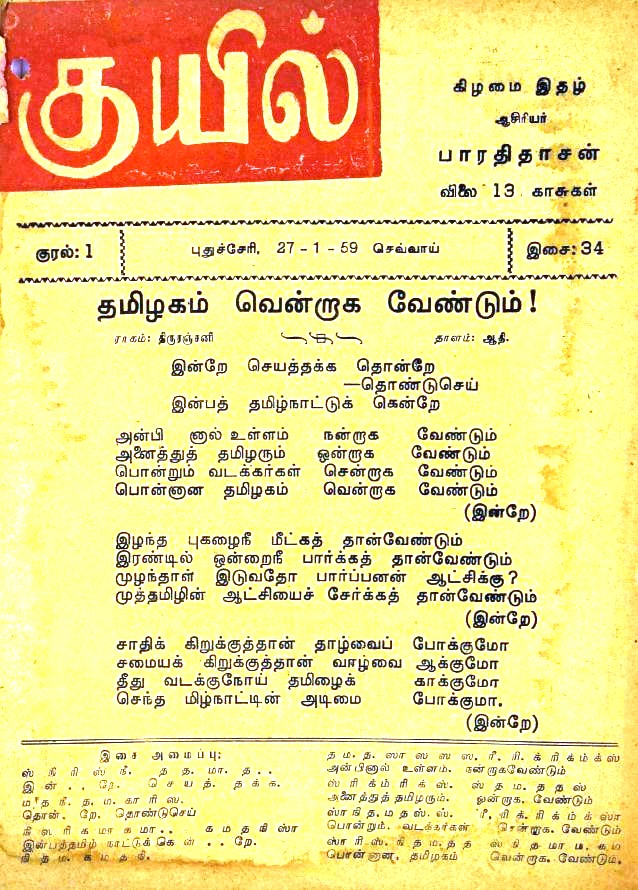 குயில்
கிழமை இதழ்
ஆசிரியர்
பாரதிதாசன்
விலை 13 காசுகள்
குரல்: 1
புதுச்சேரி, 27 - 1 - 59 செவ்வாய்
இசை: 34
தமிழகம் வென்றாக வேண்டும்!
ராகம்: திருரஞ்சனி
தாளம்: ஆதி.
இன்றே செயத்தக்க தொன்றே
—தொண்டுசெய்
இன்பத் தமிழ்நாட்டுக் கென்றே
அன்பி னால் உள்ளம் நன்றாக வேண்டும்
அனைத்துத் தமிழரும் ஒன்றாக வேண்டும்
பொன்றும் வடக்கர்கள் சென்றாக வேண்டும்
பொன்னான தமிழகம் வென்றாக வேண்டும்
(இன்றே)
இழந்த புகழைநீ மீட்கத் தான்வேண்டும்
இரண்டில் ஒன்றைநீ பார்க்கத் தான்வேண்டும்
முழந்தாள் இடுவதோ பார்ப்பனன் ஆட்சிக்கு?
முத்தமிழின் ஆட்சியைச் சேர்க்கத் தான்வேண்டும்
(இன்றே)
சாதிக் கிறுக்குத்தான் தாழ்வைப் போக்குமோ
சமையக் கிறுக்குத்தான் வாழ்வை ஆக்குமோ
தீது வடக்குநோய் தமிழைக் காக்குமோ
செந்த மிழ்நாட்டின் அடிமை போக்குமா.
(இன்றே)
இசை அமைப்பு:
ஸ் நி ரி ஸ் நீ. த த. மா. த . .
இன் . . றே. செ ய த். தக் க.
ம த நீ. த. ம. கா ரி ஸ.
தொன். றே. தொண்டுசெய்
இன்பத்தமிழ் நாட்டுக் கென் . . றே.
நி த ம. க ம த நி.
அன்பினால் உள்ளம். நன்றாகவேண்டும்
அனைத்துத் தமிழரும். ஒன்றாக. வேண்டும்
பொன்றும். வடக்கர்கள் சென்றாக. வேண்டும்
பொன்னான. தமிழகம் வென்றாக. வேண்டும்.